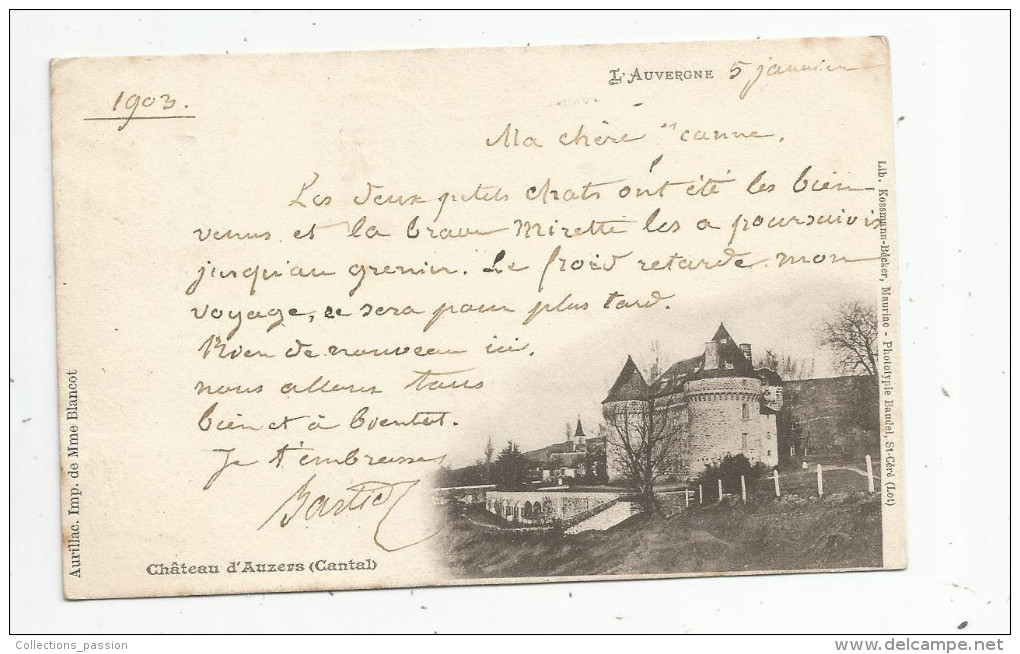 L'AUVERGNE 5 janvier
1903.
Ma chère canne,
Les deux petits chats ont été les bien
venus et la brave Mirette les a poursuivis
jusqu'au grenier. Le froid retarde mon
voyage, ce sera pour plus tard.
Rien de nouveau ici.
nous allons tous
bien et à bientot.
Je t'embrasse
Château d'Auzers (Cantal)
Aurillac. Imp. de Mme Blancot
Lib. Kossmann-Bécker, Mauriac - Phototypie Baudel, St-Céré (Lot)
Collections_passion
http://www.delcampe.net